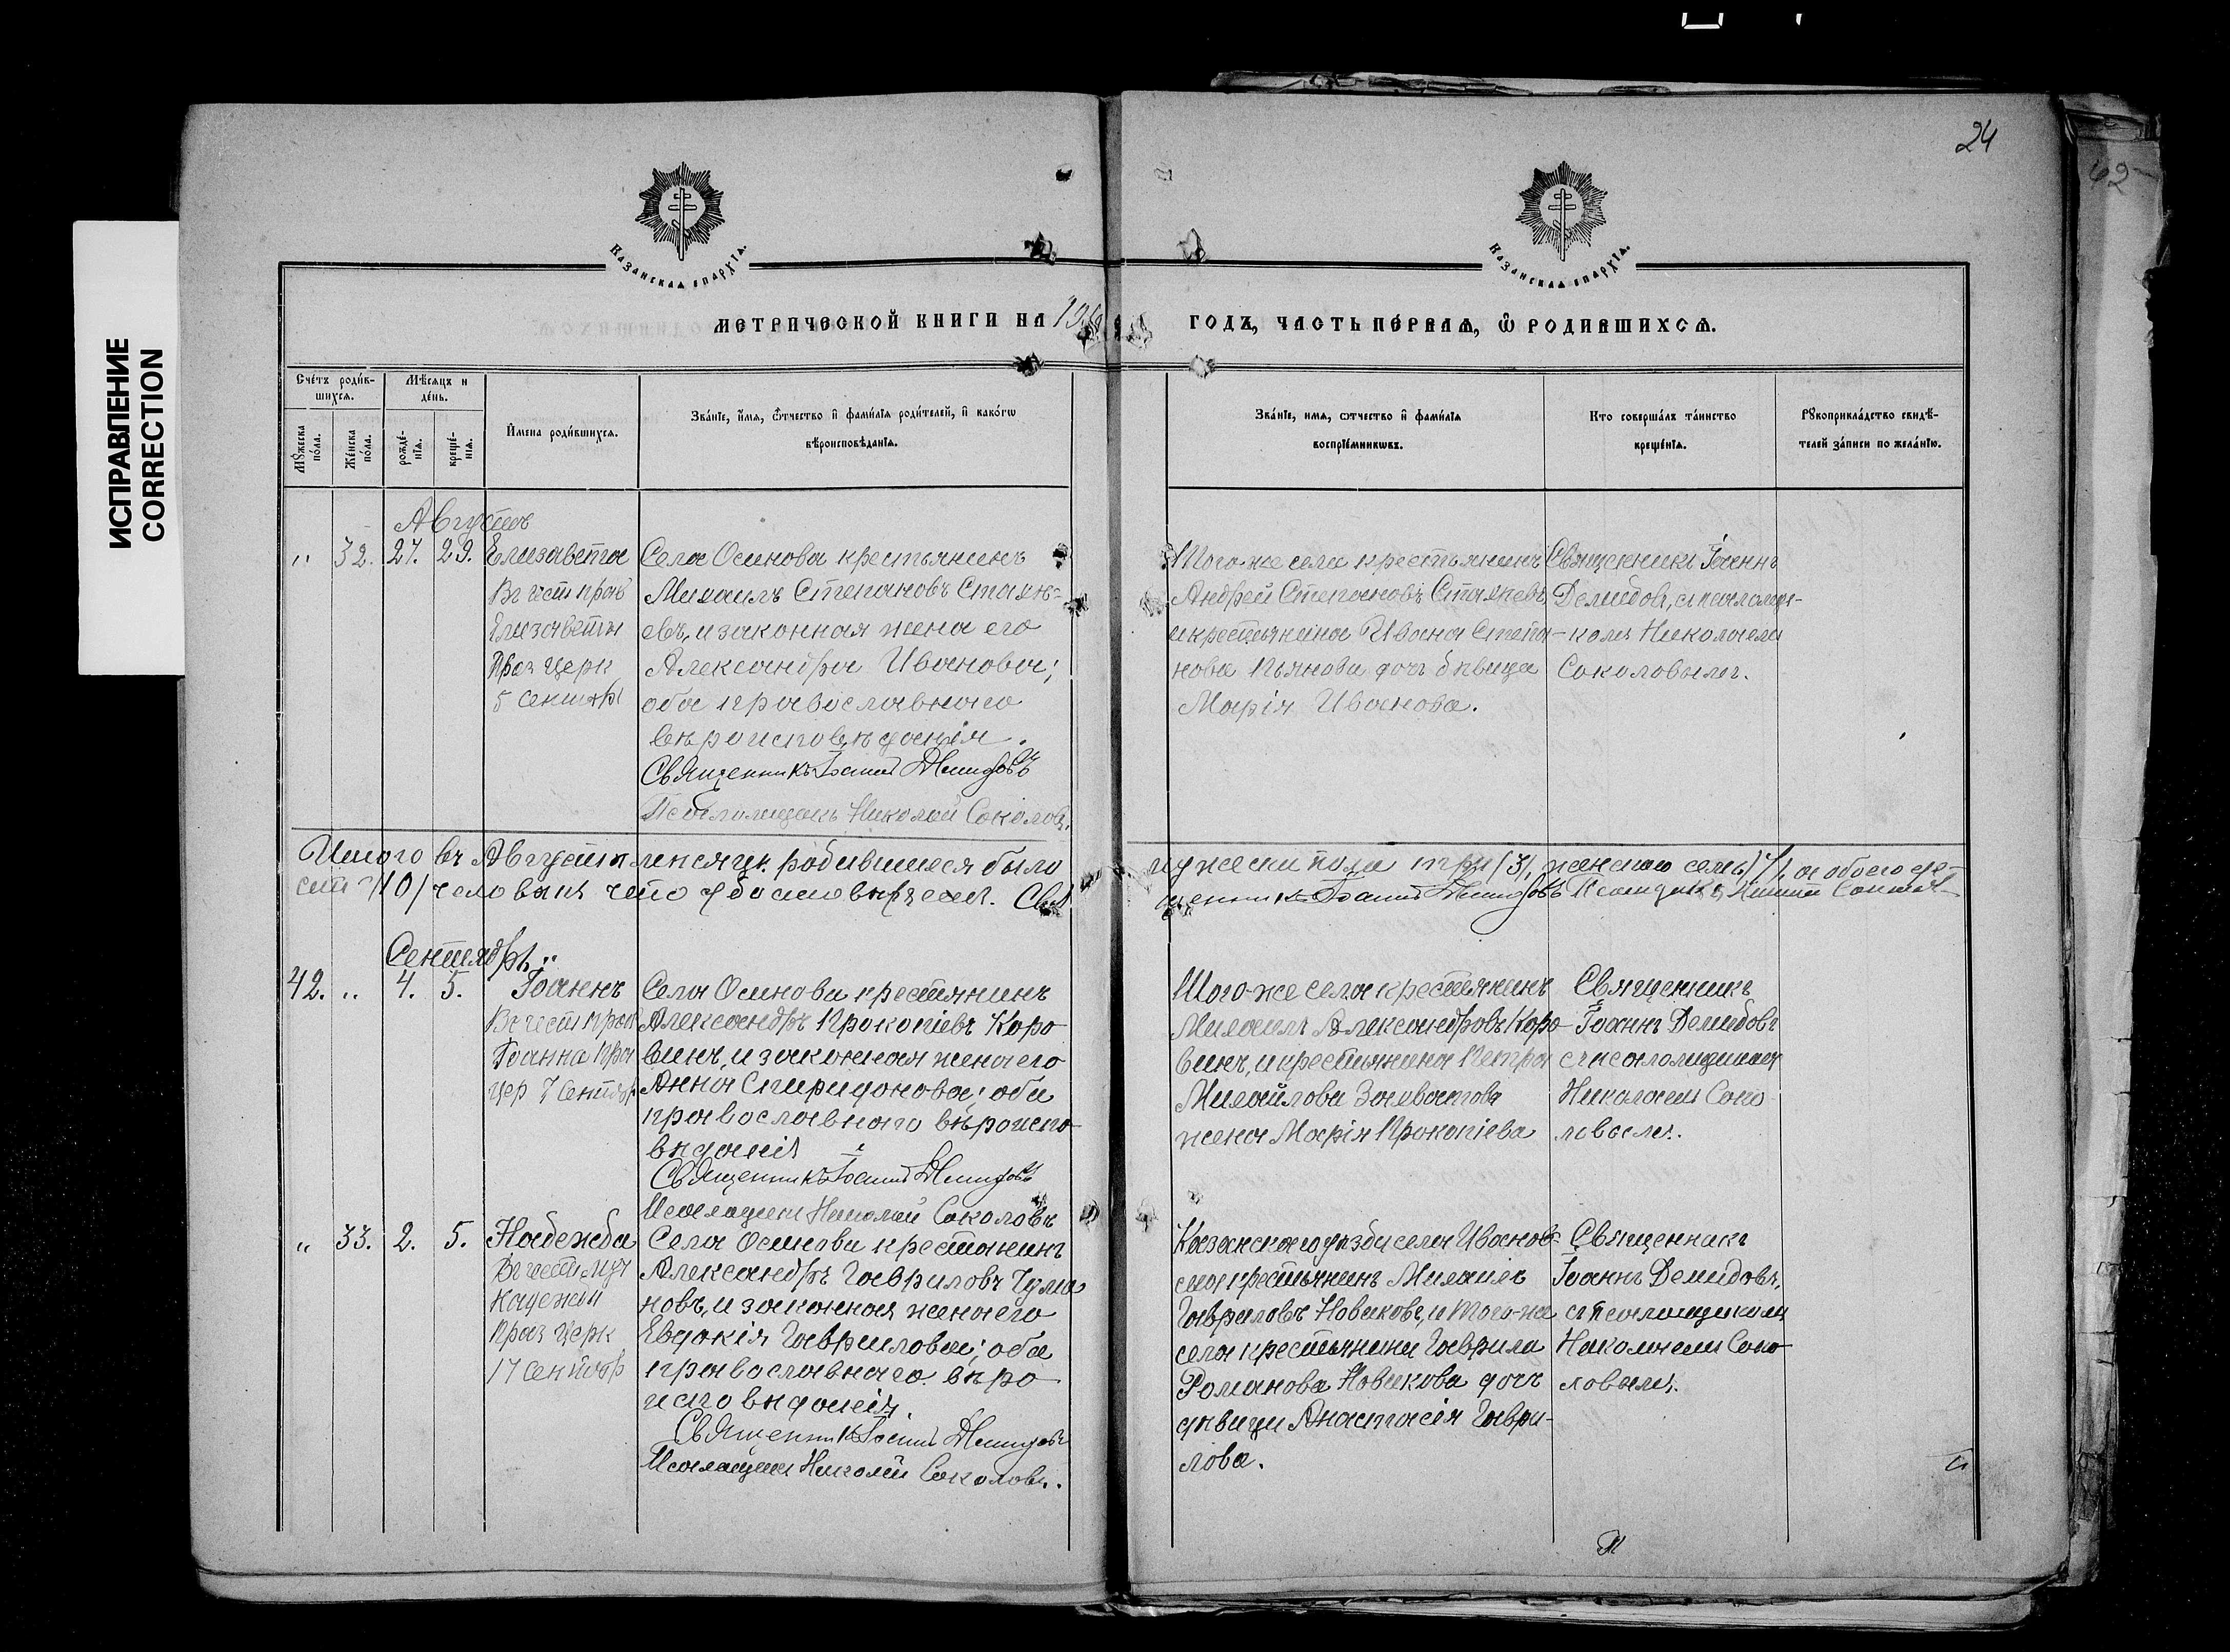 24
62
ИСПРАВЛЕНИЕ
CORRECTION
Казанская епархїа.
Казанская епархїа.
МЕТРИЧЕСКОЙ КНИГИ НА
ГОДЪ, ЧАСТЬ ПЕ́РВАЯ, Ѿ РОДИВШИХСЯ.
Сче́тъ роди́в-
шихся.
Мѣ́сяцъ и
де́нь.
Му́жеска
по́ла.
Же́нска
по́ла.
рожде́-
нїя.
креще́-
нїя.
И҆мена роди́вшихся.
Зва́нїе, и҆́мя, ѻ҆́тчество и҆ фами́лїя роди́телей, и҆ како́гѡ
вѣроисповѣ́данїя.
Зва́нїе, имя, ѻтчество и҆ фами́лїя
воспрїе́мникѡвъ.
Кто соверша́лъ та́инство
креще́нїя.
Рꙋкоприкла́дство свидѣ́-
телей за́писи по жела́нїю.
Августъ
" 32. 27. 29. Елизавета
Въ чест прав
Елизаветы
Праз церк
5 Сентяб
Села Осинова крестьянинъ
Михаилъ Степановъ Сталь=
евъ, и законная жена его
Александра Иванова;
оба православнаго
вѣроисповѣданія.
Священникъ Іоаннъ Демидовъ
Псаломщикъ Николай Соколовъ.
Того-же села крестьянинъ
Андрей Степановъ
и крестьянина Ивана Степа-
нова Пьянова дочь дѣвица
Марія Иванова.
Священникъ Іоаннъ
Демидовъ, съ псаломщи-
комъ Николаемъ
Соколовымъ.
Итого въ Августѣ мѣсяцѣ родившихся было
мужеска пола три (3), женскаго семь (7), а обоего де-
сять (10) человѣкъ что удостовѣряемъ. Свя
щенникъ Іоаннъ Демидовъ
Сентябрь
42. " 4. 5. Іоаннъ
Въ чест прор
Іоанна Праз
цер 7 Сентяб
Села Осинова крестьянинъ
Александръ Прокопіевъ Коро-
винъ, и законная жена его
Анна Спиридонова; оба
православнаго вѣроиспо-
вѣданія
Священникъ Іоаннъ Демидовъ
Псаломщикъ Николай Соколовъ
Того-же села крестьянинъ
Михаилъ Александровъ Коро-
винъ, и крестьянина Петра
Михайлова
жена Марія Прокопіева
Священникъ
Іоаннъ Демидовъ
съ псаломщикомъ
Николаемъ Соко-
ловымъ.
" 33. 2. 5. Надежда
Въ чест муч
Надежды
Праз церк
17 Сентябр
Села Осинова крестьянинъ
Александръ Гавриловъ Чума-
новъ, и законная жена его
Евдокія Гаврилова; оба
православнаго вѣро-
исповѣданія.
Священникъ Іоаннъ Демидовъ
Псаломщикъ Николай Соколовъ.
Казанскаго уѣзда села Иванов-
скаго крестьянинъ Михаилъ
Гавриловъ Новиковъ, и того-же
села крестьянина Гаврила
Романова Новикова дочь
дѣвица Анастасія Гаври-
лова.
Священникъ
Іоаннъ Демидовъ,
съ псаломщикомъ
Николаемъ Соко-
ловымъ.